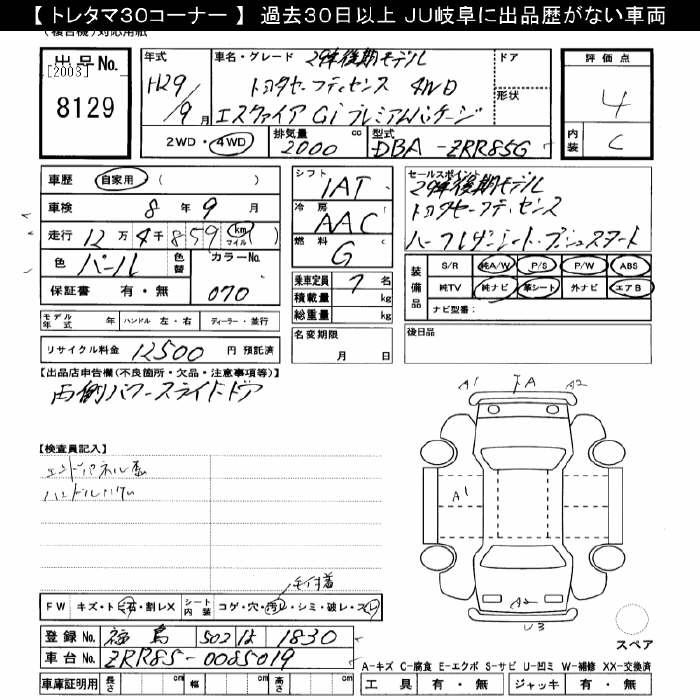 【 トレタマ30コーナー 】 過去30日以上 JU岐阜に出品歴がない車両
(複合機)対応用紙
出品No.
[2003]
8129
年式
H29/9月
車名・グレード
29年後期モデル
トヨタセーフティセンス 4WD
エスクァイア Gi プレミアムパッケージ
ドア
形状
2WD・4WD
排気量
2000 cc
型式
DBA-ZRR85G
評価点
4
内装
C
車歴 自家用 ( )
車検 8年 9月
走行 12万 4千 859 km マイル
色 パール
色替
カラーNo.
070
保証書 有・無
シフト
IAT
冷房
AAC
燃料
G
乗車定員 7 名
積載量 kg
総重量 kg
セールスポイント
29年後期モデル
トヨタセーフティセンス
ハーフレザーシート・プッシュスタート
装備品
S/R 純A/W P/S P/W ABS
純TV 純ナビ 革シート 外ナビ エアB
ナビ型番:
モデル年式 年 ハンドル 左・右 ディーラー・並行
リサイクル料金 12500 円 預託済
名変期限
月 日
後日品
【出品店申告欄(不良箇所・欠品・注意事項等)】
両側パワースライドドア
【検査員記入】
A1
FA
A2
A1
A2
U3
毛付着
FW キズ・トビ石・割レX
シート内装 コゲ・穴・汚レ・シミ・破レ・スレ
登録No. 福島 502 は 1830
車台No. ZRR85-0085019
スペア
A-キズ C-腐食 E-エクボ S-サビ U-凹ミ W-補修 XX-交換済
車庫証明用 長さ cm 幅 cm 高さ cm
工具 有・無 ジャッキ 有・無